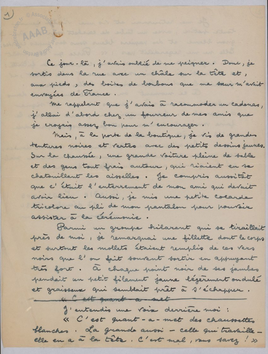 1
AAAB
Ce jour-là, j'avais oublié de me peigner. Donc, je
sortis dans la rue avec un châle sur la tête et,
aux pieds, des boîtes de bonbons que ma sœur m'avait
envoyées de France.
Me rappelant que j'avais à raccommoder un cadenas,
j'allai d'abord chez un fourreur de mes amis que
je croyais assez bon pour m'encourager.
Mais, à la porte de la boutique, je vis de grandes
tentures noires et vertes avec des petits dessins jaunes.
Sur la chaussée, une grande voiture pleine de sable
et des gens tout frais autour, qui riaient en se
chatouillant les aisselles. Je compris aussitôt
que c'était l'enterrement de mon ami qui devait
avoir lieu. Aussi, je mis une petite cocarde
tricolore au pli de mon pantalon pour pouvoir
assister à la cérémonie.
Parmi un groupe hilarant qui se tiraillait
près de moi, je remarquai une fillette dont le corps
et surtout les mollets étaient remplis de ces vers
noirs que l'on fait souvent sortir en appuyant
très fort. À chaque point noir de ses jambes
pendait un petit filament jaune légèrement ondulé
et graisseux qui semblait prêt à s'échapper.
J'entendis une voix derrière moi :
" C'est quant-a-met des chaussettes
blanches. La grande aussi - celle qui travaille -
elle en a à la tête. C'est mal, vous savez ! "